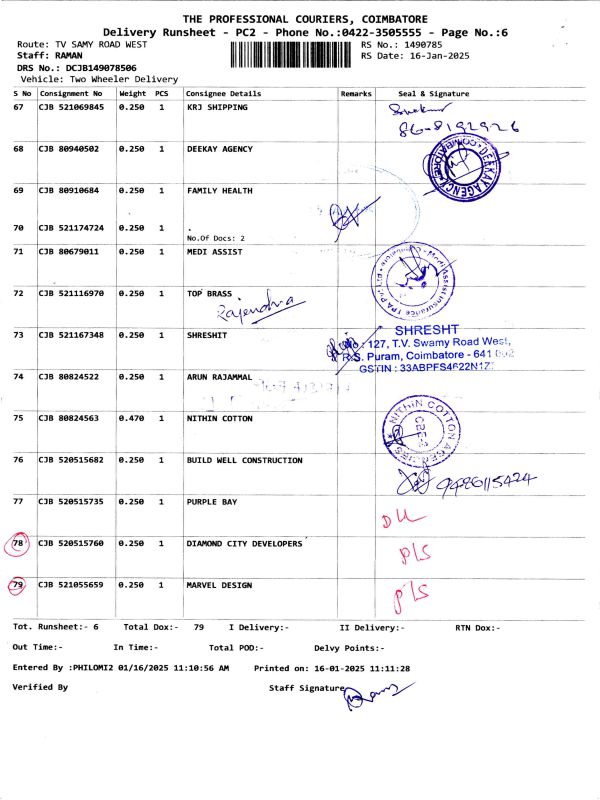 THE PROFESSIONAL COURIERS, COIMBATORE
Delivery Runsheet - PC2 - Phone No.:0422-3505555 - Page No.:6
Route: TV SAMY ROAD WEST RS No.: 1490785
Staff: RAMAN RS Date: 16-Jan-2025
DRS No.: DCJB149078506
Vehicle: Two Wheeler Delivery
S No Consignment No Weight PCS Consignee Details Remarks Seal & Signature
67 CJB 521069845 0.250 1 KRJ SHIPPING
68 CJB 80940502 0.250 1 DEEKAY AGENCY
DEEKAY AGENCY COIMBATORE
69 CJB 80910684 0.250 1 FAMILY HEALTH
70 CJB 521174724 0.250 1 .
No.Of Docs: 2
71 CJB 80679011 0.250 1 MEDI ASSIST
Medi Assist Insurance TPA Pvt Ltd
72 CJB 521116970 0.250 1 TOP BRASS
Rajendra
73 CJB 521167348 0.250 1 SHRESHIT
SHRESHT
127, T.V. Swamy Road West,
R.S. Puram, Coimbatore - 641 002
GSTIN : 33ABPFS4622N1Z
74 CJB 80824522 0.250 1 ARUN RAJAMMAL
75 CJB 80824563 0.470 1 NITHIN COTTON
NITHIN COTTON AGENCIES
CBE-2
76 CJB 520515682 0.250 1 BUILD WELL CONSTRUCTION
9486115424
77 CJB 520515735 0.250 1 PURPLE BAY
DL
78 CJB 520515760 0.250 1 DIAMOND CITY DEVELOPERS
P/S
79 CJB 521055659 0.250 1 MARVEL DESIGN
P/S
Tot. Runsheet:- 6 Total Dox:- 79 I Delivery:- II Delivery:- RTN Dox:-
Out Time:- In Time:- Total POD:- Delvy Points:-
Entered By :PHILOMI2 01/16/2025 11:10:56 AM Printed on: 16-01-2025 11:11:28
Verified By Staff Signature